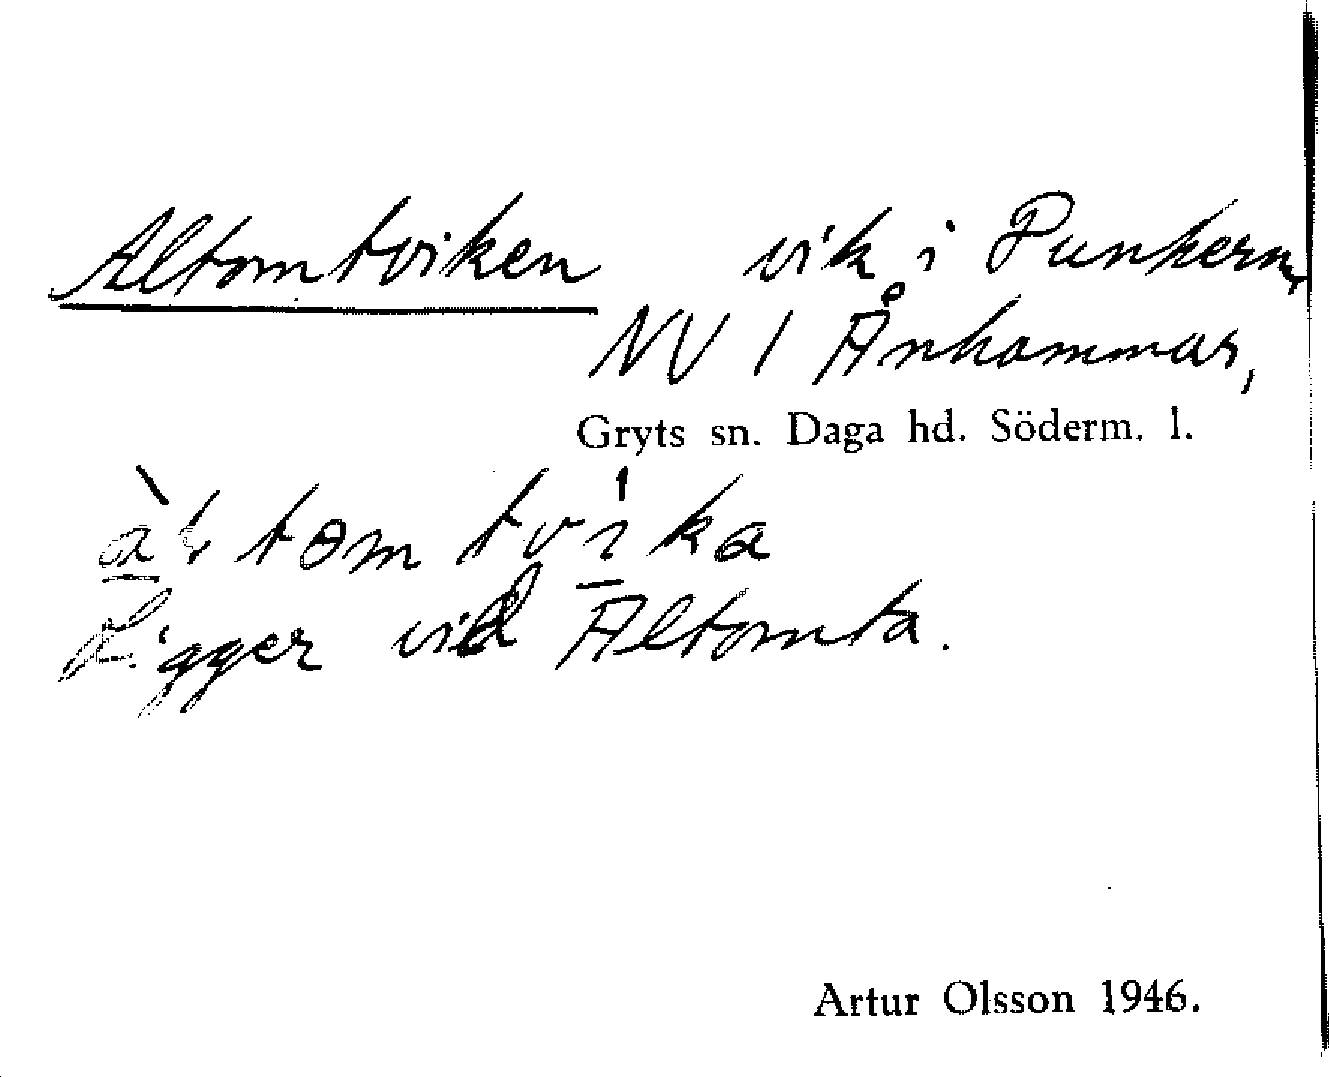 Altomtviken vik i Punkern,
NV / Ånhammar,
Gryts sn. Daga hd. Söderm. l.
tomtvika
Ligger vid Altomta.
Artur Olsson 1946.